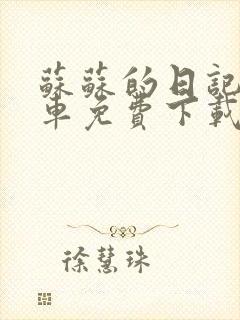 蘇蘇的日記
車免費下載
徐慧珠